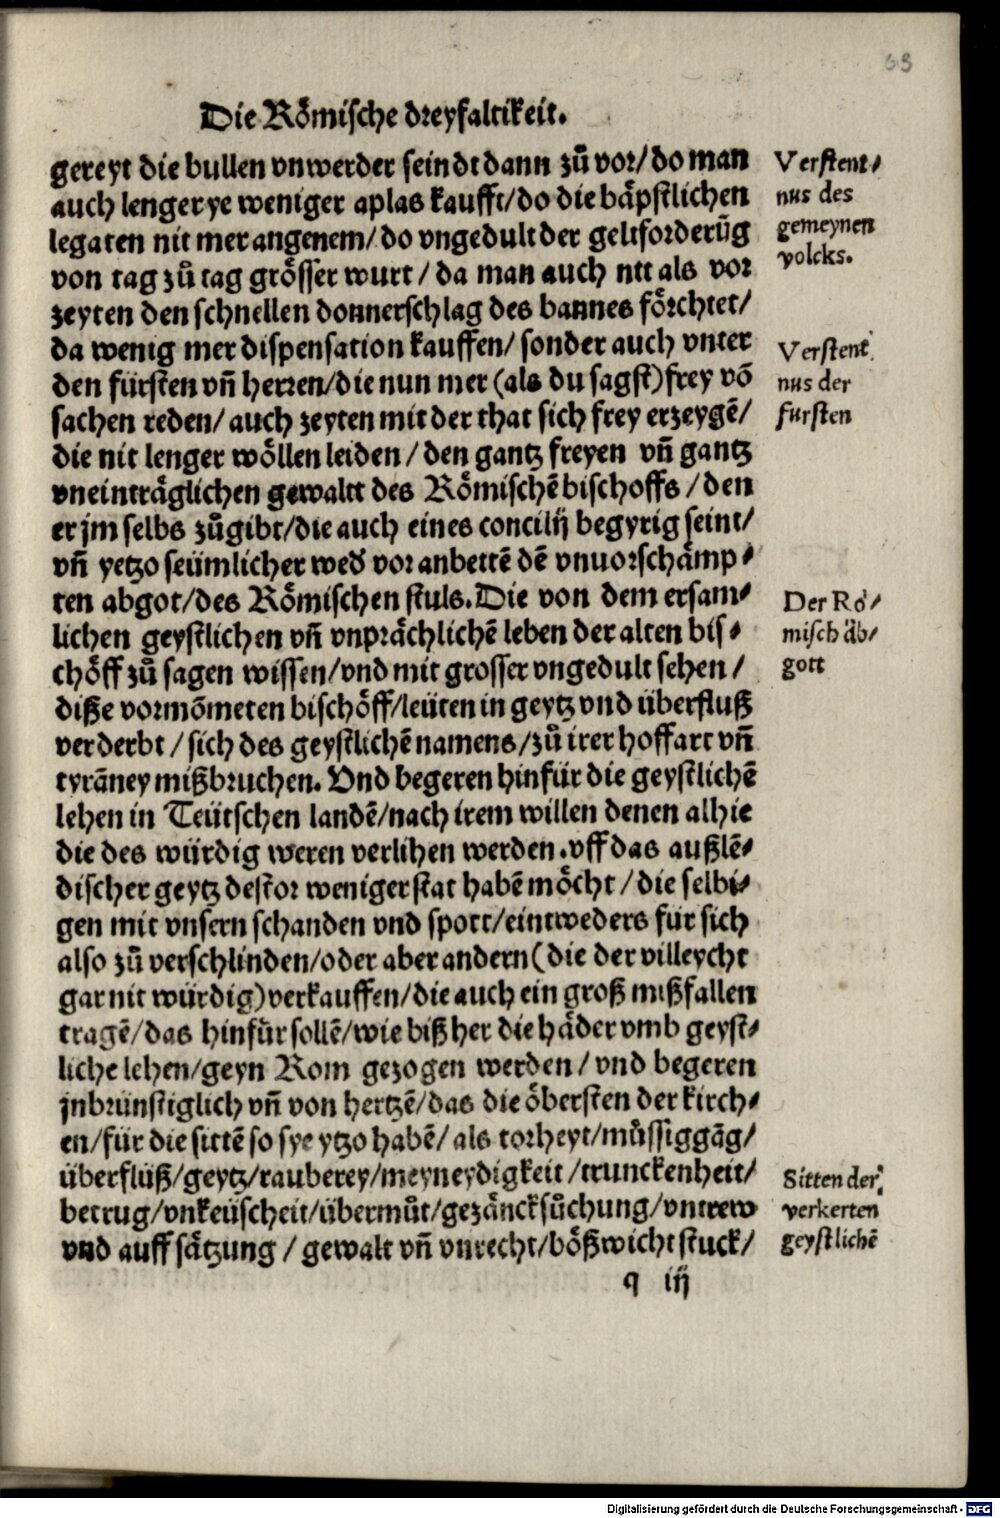 63
Die Römische dreyfaltikeit.
gereyt die bullen vnwerder seindt dann zů vor/ do man
auch lenger ye weniger aplas kaufft/ do die bäpstlichen
legaten nit mer angenem/ do vngedult der geltforderūg
von tag zů tag grösser wurt / da man auch nit als vor
zeyten den schnellen donnerschlag des bannes förchtet/
da wenig mer dispensation kauffen/ sonder auch vnter
den fürsten vñ herren/die nun mer (als du sagst) frey vō
sachen reden/ auch zeyten mit der that sich frey erzeygē/
die nit lenger wöllen leiden / den gantz freyen vñ gantz
vneinträglichen gewaltt des Römischē bischoffs / den
er jm selbs zůgibt/die auch eines concilij begyrig seint/
vñ yetzo seümlicher wed vor anbettē dē vnuorschämp⸗
ten abgot/des Römischen stuls. Die von dem ersam⸗
lichen geystlichen vñ vnprächlichē leben der alten bis⸗
chöff zů sagen wissen/vnd mit grosser vngedult sehen /
diße vormōmeten bischöff/leüten in geytz vnd überfluß
verderbt / sich des geystlichē namens/zů irer hoffart vñ
tyrāney mißbruchen. Vnd begeren hinfür die geystlichē
lehen in Teütschen landē/nach irem willen denen alhie
die des würdig weren verlihen werden. vff das außlē⸗
discher geytz destor weniger stat habē möcht / die selbi⸗
gen mit vnsern schanden vnd spott/eintweders für sich
also zů verschlinden/oder aber andern (die der villeycht
gar nit würdig) verkauffen/die auch ein groß mißfallen
tragē/das hinfür sollē/wie biß her die häder vmb geyst⸗
liche lehen/geyn Rom gezogen werden / vnd begeren
jnbrünstiglich vñ von hertzē/das die öbersten der kirch⸗
en/für die sittē so sye ytzo habē/ als torheyt/müssiggāg/
überflüß/geytz/rauberey/meyneydigkeit /trunckenheit/
betrug/vnkeüscheit/übermůt/gezäncksůchung/vntrew
vnd auffsätzung / gewalt vñ vnrecht/bößwicht stuck/
q iij
Verstent⸗
nus des
gemeynen
volcks.
Verstent
nus der
fursten
Der Rö⸗
misch ab⸗
gott
Sitten der
verkerten
geystlichē
Digitalisierung gefördert durch die Deutsche Forschungsgemeinschaft - DFG